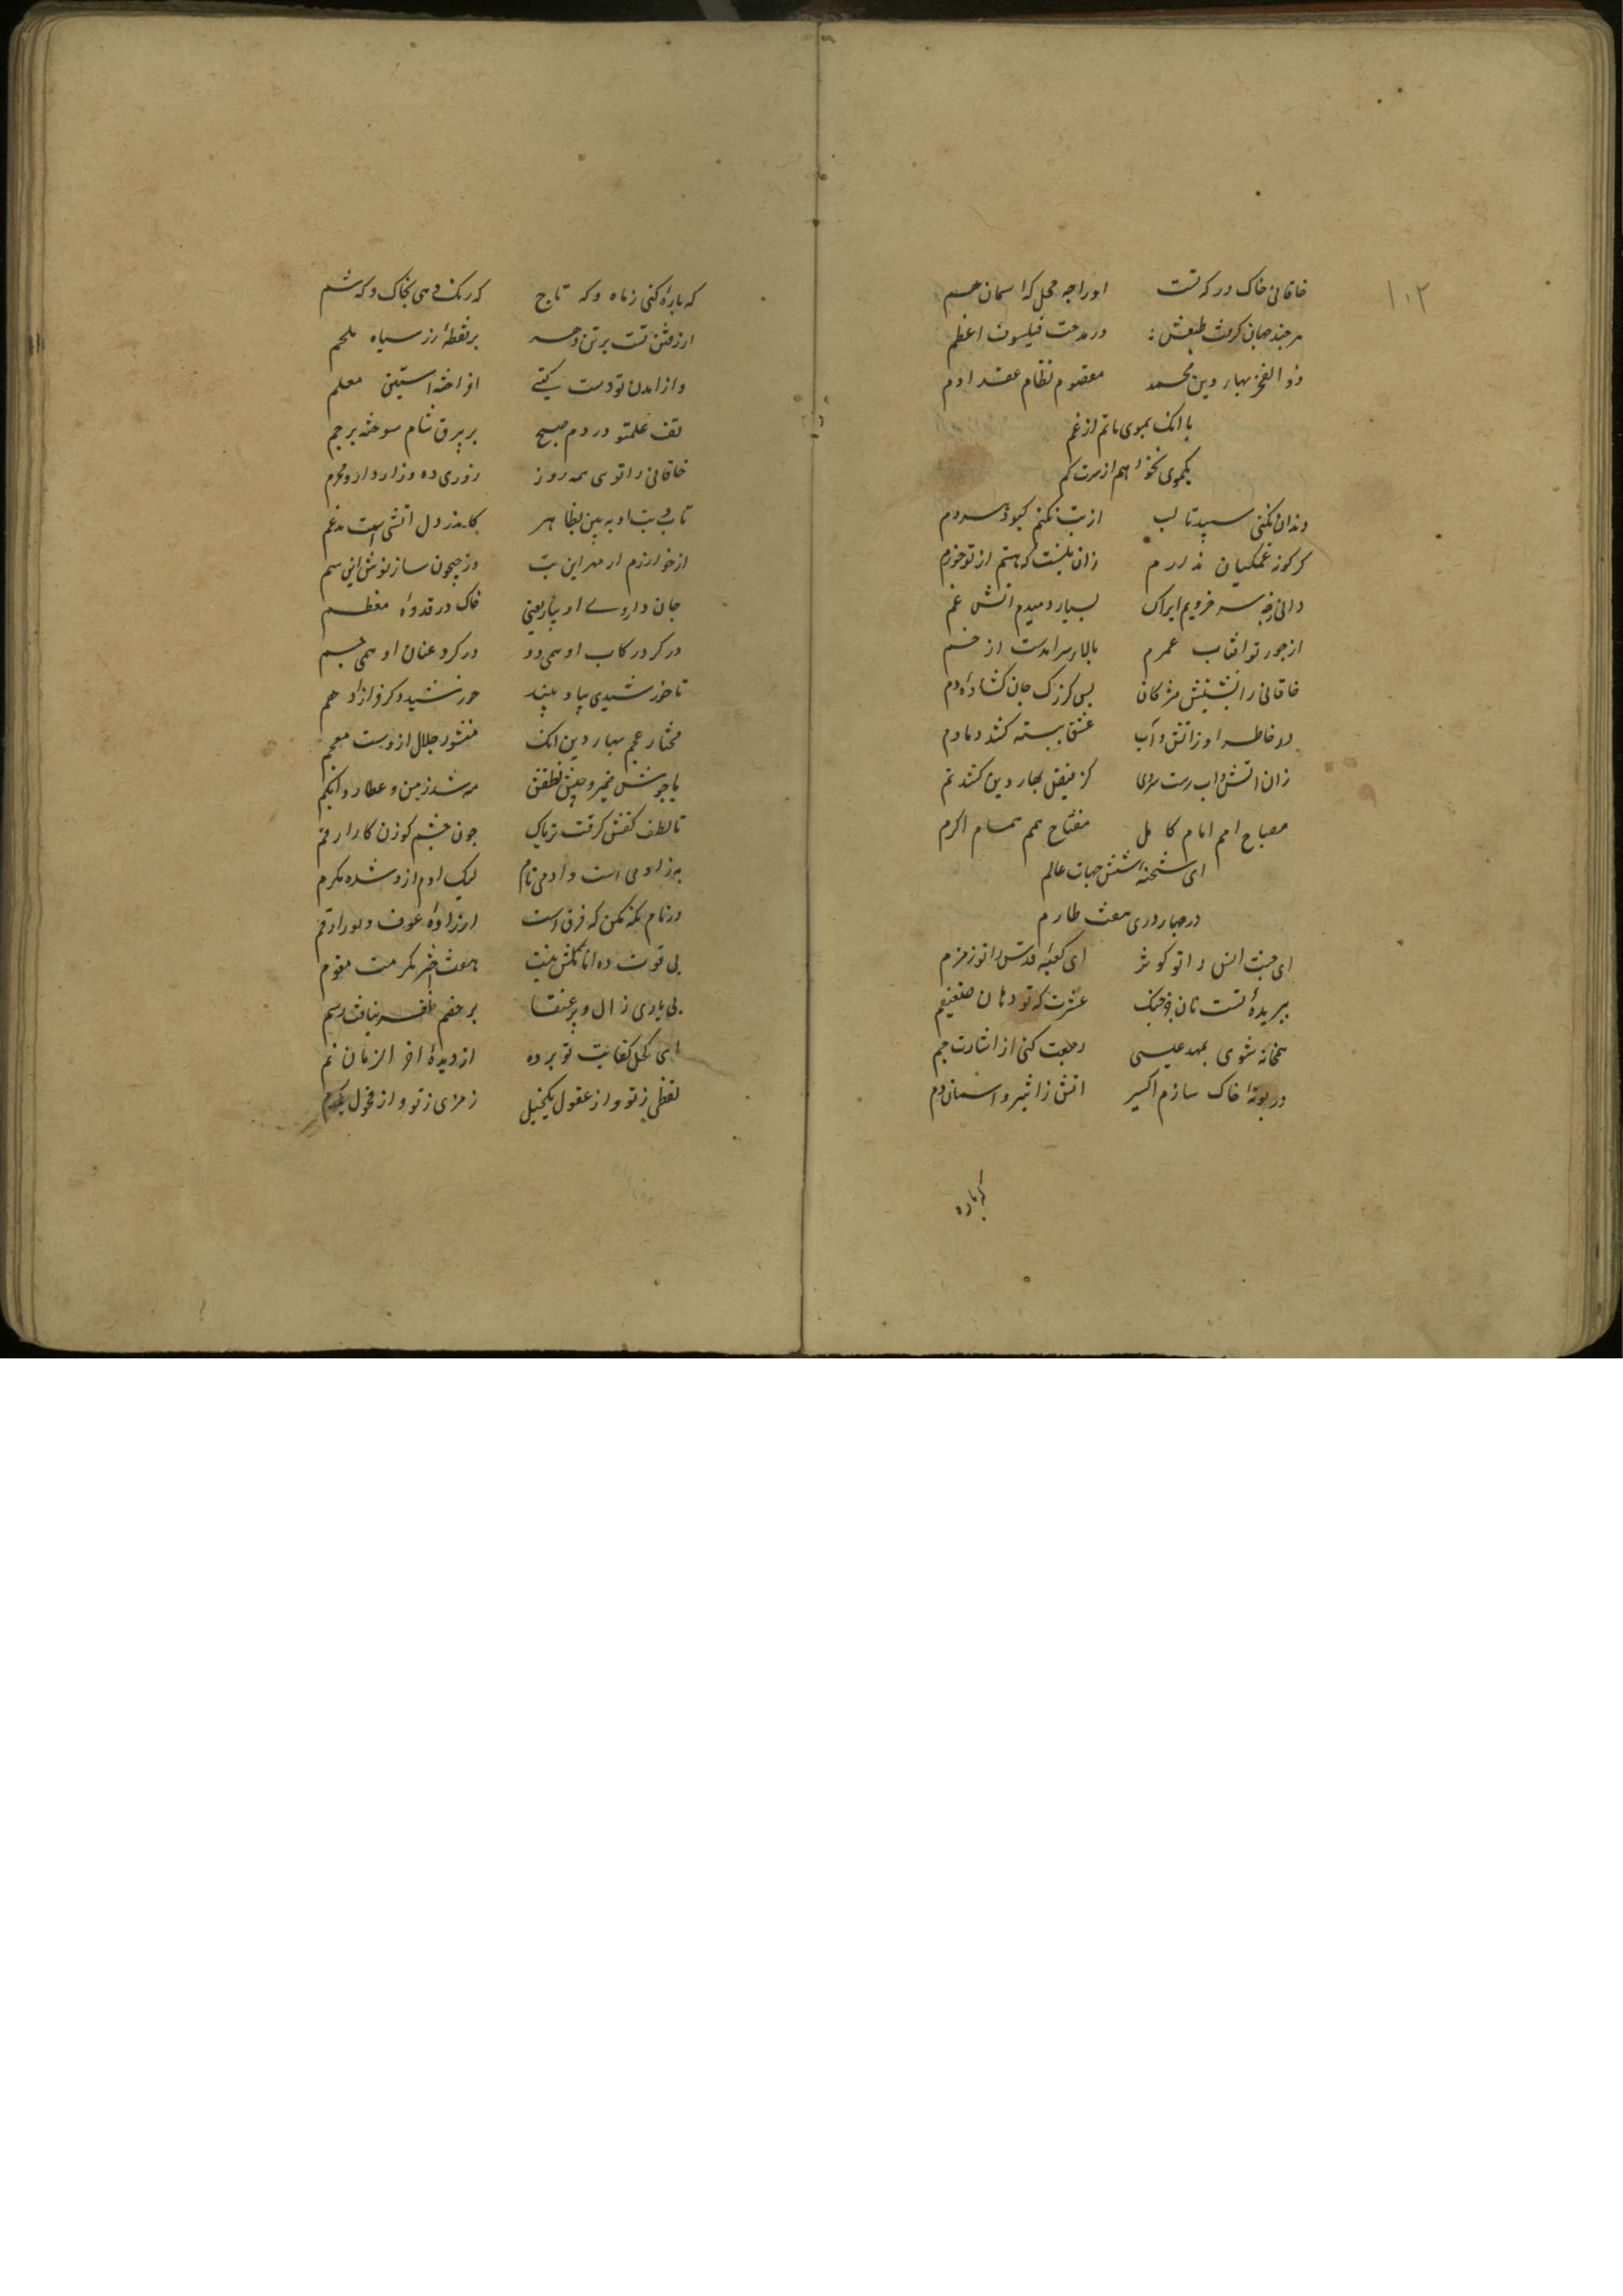 ۱۰۲
خاقانی خاک درکه تست اورا چه محل که اسمان هم
هرچند جهان کرفت طبعش در مدحت فیلسوف اعظم
ذو الفخر بهار دین محمد مقصوم نظام عقد ادم
با انک بموی ماتم از غم
یکموی نخوا هم از سرت کم
دندان نکنی سپید تا لب از تب نکنم کبود هر دم
کر کونه غمکنان ندارم زان نیست که نیستم از تو خرم
دانی ز چه سرخ رویم ایراک بسیار دمیدم اتش غم
از جور تو افتاب عمرم بالای سر امدست از خم
خاقانی را بتیش مژکان بس کز رک جان کشاده دم
در خاطر او ز اتش و آب عشق بسته کشد دمادم
زان اتش و اب رست سروی کز فیض بهار دین کشد نم
مصباح امم امام کامل مفتاح همم همام اکرم
ای شحنه شش جهات عالم
در چار دری هفت طارم
ای جنت انس را تو کوثر ای کعبه قدس را تو زمزم
ببریده تست نان عشرت که تو دهان ضیغم
همخانه شوی بمهد عیسی رجعت کنی از اشارت جم
در بوته خاک سازم اکسیر اتش ز اثیر و اسمان دم
که یاره
که یاره کنی ز ماه و که تاج که رنک دهی بخاک و که شم
از رفتن تست بر تن دهر بر نقطه زر سیاه ملحم
واز امدن تو دست کیتی افراخته استین معلم
تف علمت و در دم صبح بر بیرق شام سوخته پرچم
خاقانی را توی همه روز روزی ده و رازدار و محرم
تاب و تب او ببین بظاهر کاندر دل اتشی است مدغم
از خوارزم ار مهر این تب وز جیحون ساز نوش این سم
جان داروی او بیار یعنی خاک در قدوه معظم
در کرد رکاب او همی دو در کرد عنان او همی چم
تا خورشیدی پیاده بیند خورشید و کر فراز ادهم
مختار عجم بهار دین انک منشور جلال ازوست معجم
با جوشش ضمیر و جیش نطقش مه شد زمن و عطارد ابکم
تا لطف کفش کرفت تریاک چون چشم کوزن کار ارقم
هر ز ادمی است و ادمی نام لیک ادم ازو شده مکرم
در نام نکه مکن که فرق است از زاده عوف و پور ادهم
بی قوت ده انامل نیست هفت اختر مکرمت مقوم
بی یاری زال و پر عنقا بر خصم ظفر نیافت رستم
ای کحل کفایت تو برده از دیده اخر الزمان نم
لفظی ز تو و از عقول یکخیل رمزی ز تو و از فحول یکدم